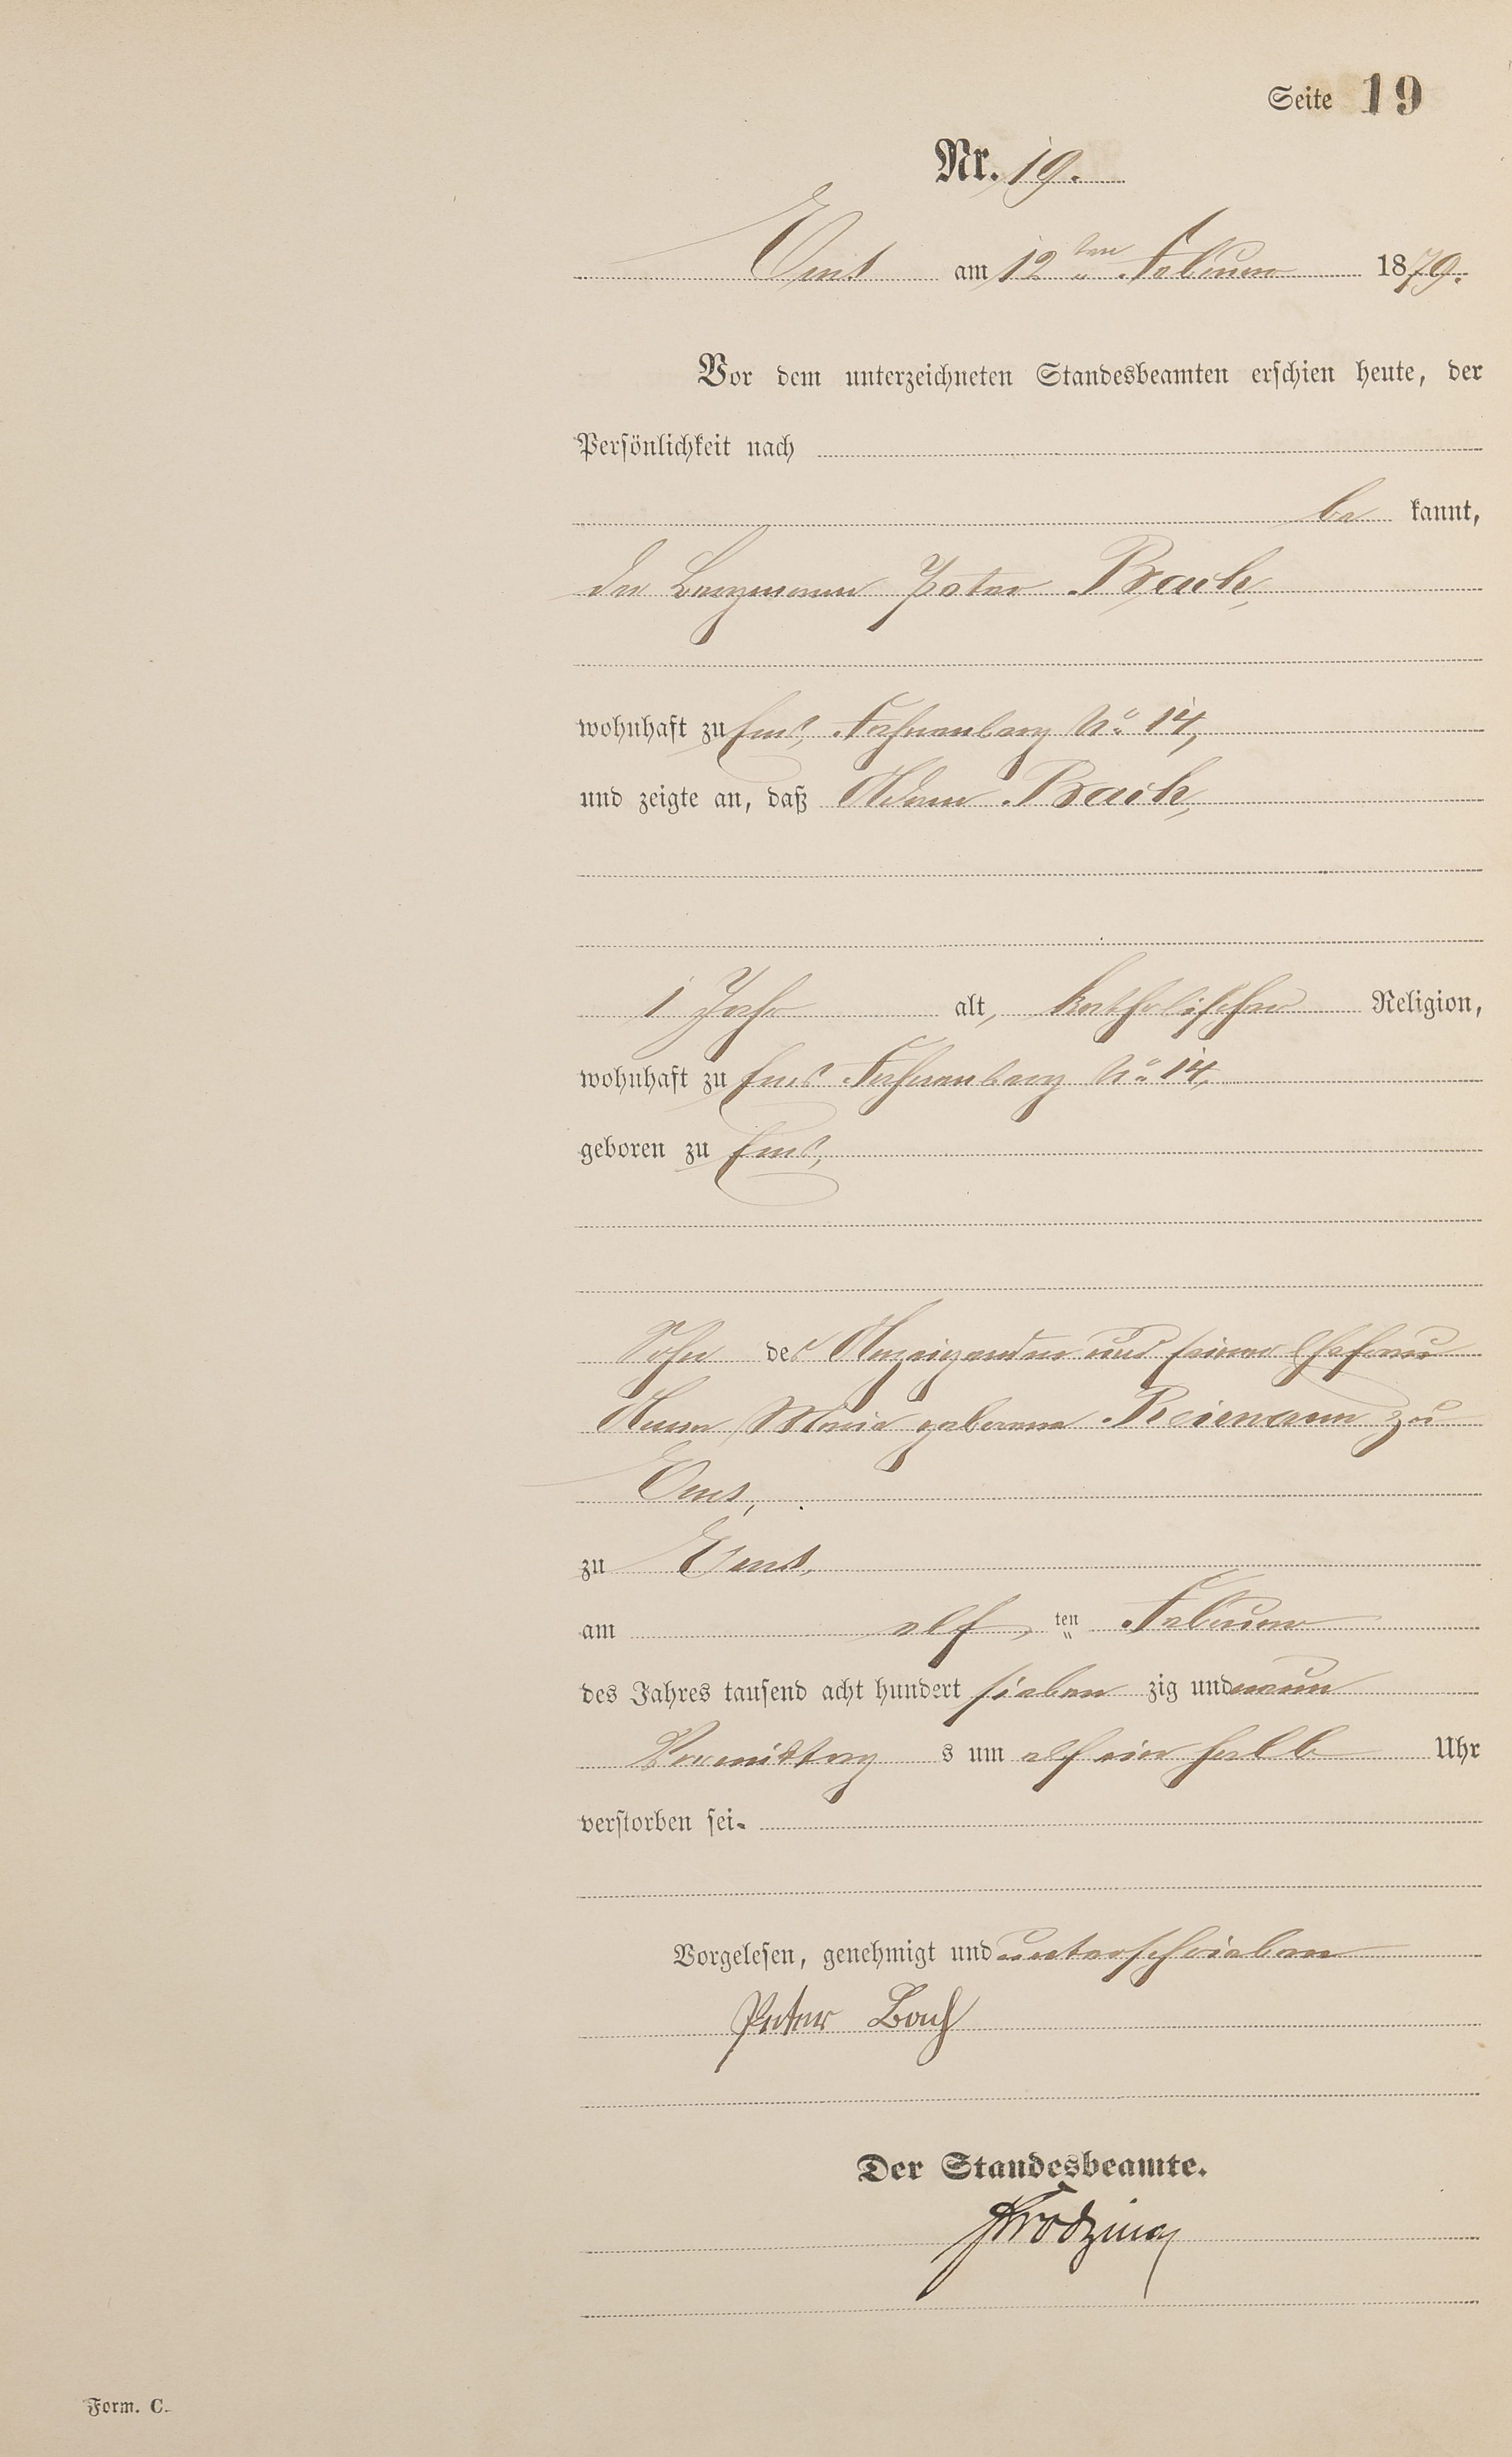 Seite 19
Nr. 19.
Ems am 12ten Februar 1879.
Vor dem unterzeichneten Standesbeamten erschien heute, der
Persönlichkeit nach
be kannt,
der Bergmann Peter Bach,
wohnhaft zu Ems, Fahnenberg No 14,
und zeigte an, daß Adam Bach,
1 Jahr alt, katholischer Religion,
wohnhaft zu Ems Fahnenberg No 14,
geboren zu Ems,
Sohn des Anzeigenden und seiner Ehefrau
Anna Maria geborene Reimann zu
Ems,
zu Ems,
am elf ten Februar
des Jahres tausend acht hundert sieben zig und neun
Vormittag s um elf ein halb Uhr
verstorben sei.
Vorgelesen, genehmigt und unterschrieben
Peter Bach
Der Standesbeamte.
Form. C.